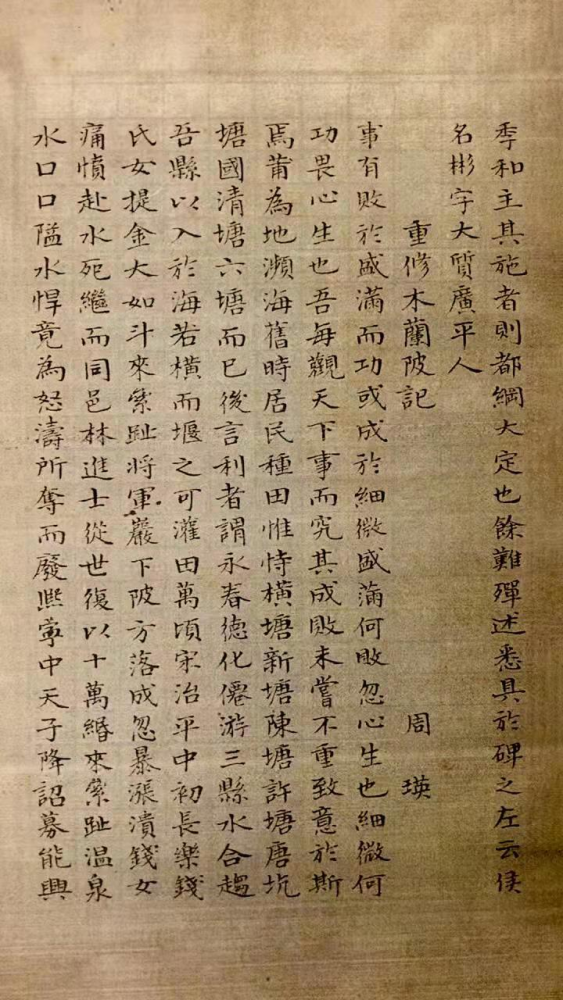 季和主其施者則都綱大定也餘難殫述悉具於碑之左云侯
名彬字大質廣平人
重修木蘭陂記 周瑛
事有敗於盛滿而功或成於細微盛滿何敗忽心生也細微何
功畏心生也吾每觀天下事而究其成敗未嘗不重致意於斯
焉莆為地瀕海舊時居民種田惟恃橫塘新塘陳塘許塘唐坑
塘國清塘六塘而已後言利者謂永春德化僊游三縣水合趨
吾縣以入於海若橫而堰之可灌田萬頃宋治平中初長樂錢
氏女提金大如斗來縈趾將軍巖下陂方落成忽暴漲潰錢女
痛憤赴水死繼而同邑林進士從世復以十萬緡來縈趾溫泉
水口口隘水悍竟為怒濤所奪而廢熙寧中天子降詔募能興